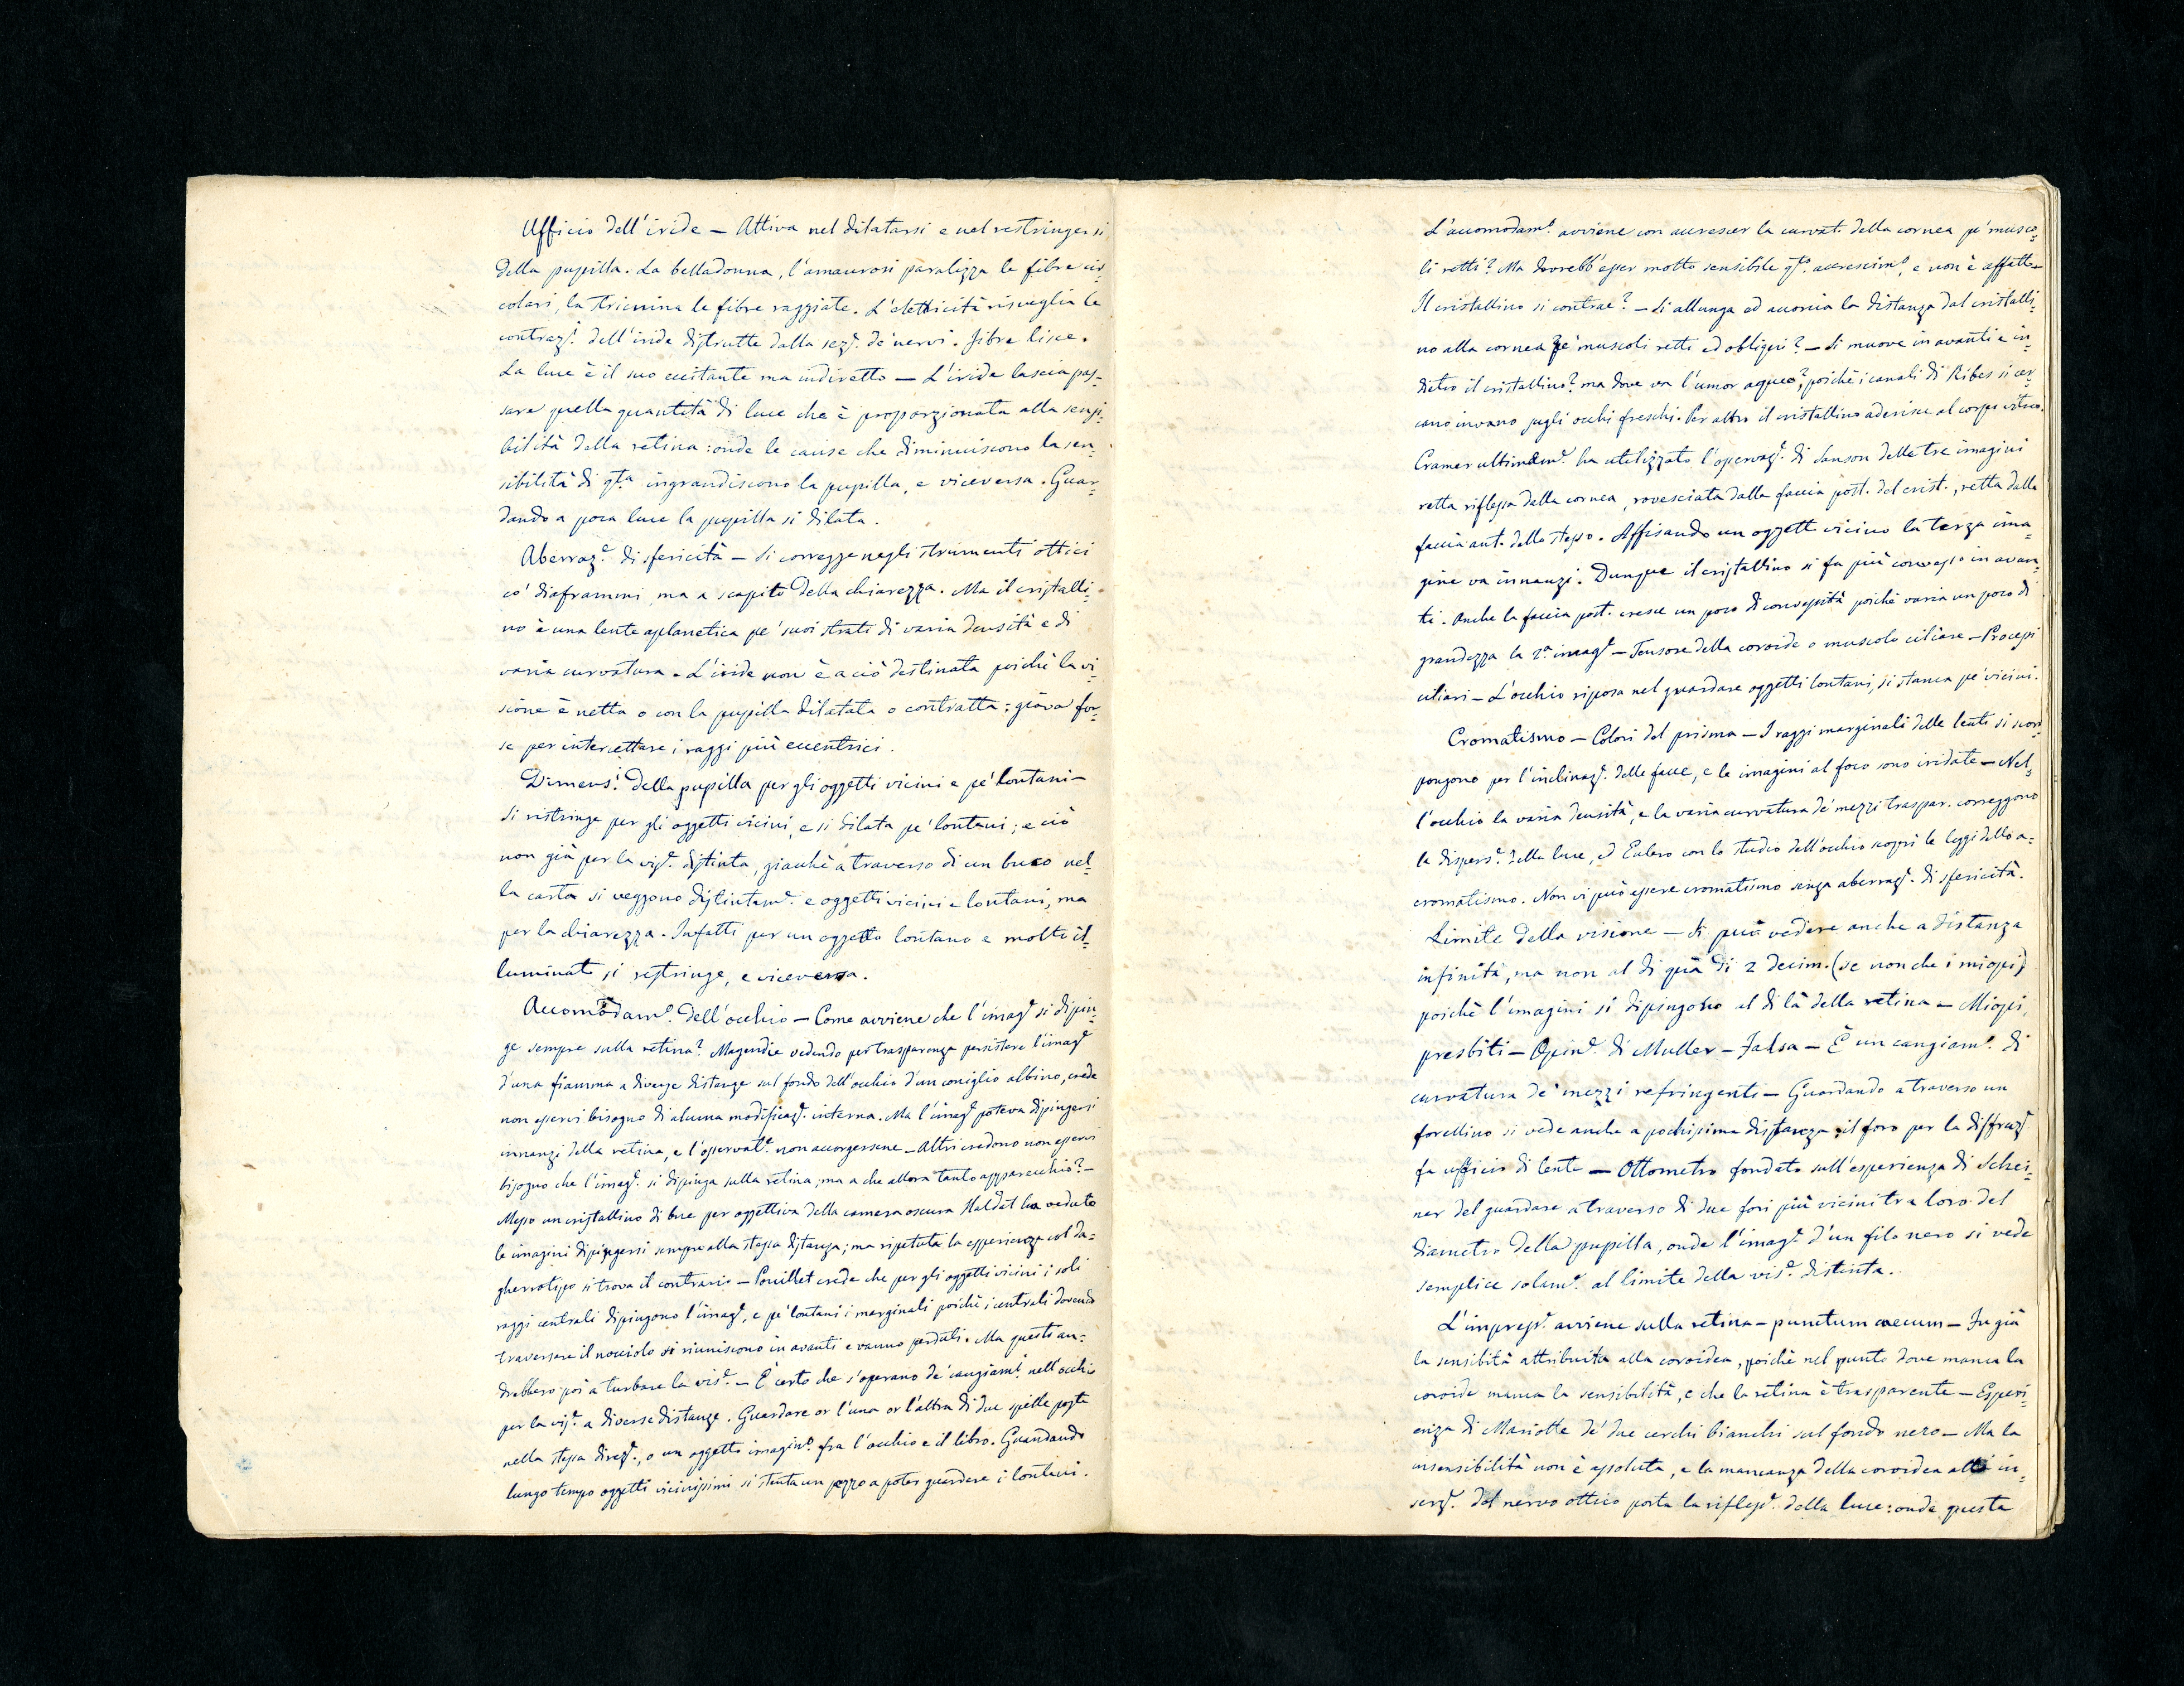 Ufficio dell'iride — Attiva nel dilatarsi e nel restringersi
della pupilla. La belladonna, l'amaurosi paralizza le fibre cir=
colari, la stricnina le fibre raggiate. L'elettricità risveglia le
contrazi. dell'iride distrutte dalla sez.e de' nervi. Fibre lisce.
La luce è il suo eccitante ma indiretto — L'iride lascia pas=
sare quella quantità di luce che è proporzionata alla sensi=
bilità della retina: onde le cause che diminuiscono la sen=
sibilità di q.ta ingrandiscono la pupilla, e viceversa. Guar=
dando a poca luce la pupilla si dilata.
Aberraz.e di sfericità — Si corregge negli strumenti ottici
co' diaframmi, ma a scapito della chiarezza. Ma il cristalli=
no è una lente aplanetica pe' suoi strati di varia densità e di
varia curvatura. L'iride non è a ciò destinata poichè la vi=
sione è netta o con la pupilla dilatata o contratta; giova for=
se per intercettare i raggi più eccentrici.
Dimens.i della pupilla per gli oggetti vicini e pe' lontani —
Si ristringe per gli oggetti vicini, e si dilata pe' lontani; e ciò
non già per la vis.e distinta, giacchè a traverso di un buco nel=
la carta si veggono distintam.e e oggetti vicini e lontani, ma
per la chiarezza. Infatti per un oggetto lontano e molto il=
luminato si ristringe, e viceversa.
Accomodam.o dell'occhio — Come avviene che l'imag.e si dipin=
ge sempre sulla retina? Magendie vedendo per trasparenza persistere l'imag.e
d'una fiamma a diverse distanze sul fondo dell'occhio d'un coniglio albino, crede
non esservi bisogno di alcuna modificaz.e interna. Ma l'imag.e poteva dipingersi
innanzi della retina, e l'osservat.e non accorgersene — Altri credono non esservi
bisogno che l'imag.e si dipinga sulla retina; ma a che allora tanto apparecchio? —
Messo un cristallino di bue per oggettiva della camera oscura Haldat ha veduto
le imagini dipingersi sempre alla stessa distanza; ma ripetuta la esperienza col da=
gherrotipo si trova il contrario — Pouillet crede che per gli oggetti vicini i soli
raggi centrali dipingono l'imag.e, e pe' lontani i marginali poichè i centrali dovendo
traversare il nocciolo si riuniscono in avanti e vanno perduti. Ma questi an=
drebbero poi a turbare la vis.e — È certo che s'operano de' cangiam.i nell'occhio
per la vis.e a diverse distanze. Guardare or l'una or l'altra di due spille poste
nella stessa direz.e, o un oggetto imagin.o fra l'occhio e il libro. Guardando
lungo tempo oggetti vicinissimi si stenta un pezzo a poter guardare i lontani.
L'accomodam.o avviene con accrescer la curvat. della cornea pe' musco=
li retti? Ma dovrebb'esser molto sensibile q.to accrescim.o, e non è affatto
Il cristallino si contrae? — Si allunga ed accorcia la distanza dal cristalli=
no alla cornea pe' muscoli retti ed obliqui? — Si muove in avanti e in=
dietro il cristallino? ma dove va l'umor aqueo?, poichè i canali di Ribes si cer=
cano invano sugli occhi freschi. Per altro il cristallino aderisce al corpo vitreo.
Cramer ultimam.e ha utilizzato l'osservaz.e di Sanson delle tre imagini
retta riflessa dalla cornea, rovesciata dalla faccia post. del crist., retta dalla
faccia ant. dello stesso. Affisando un oggetto vicino la terza ima=
gine va innanzi. Dunque il cristallino si fa più convesso in avan=
ti. Anche la faccia post. cresce un poco di convessità poichè varia un poco di
grandezza la 2.a imag.e — Tensore della coroide o muscolo ciliare — Processi
ciliari — L'occhio riposa nel guardare oggetti lontani, si stanca pe' vicini.
Cromatismo — Colori del prisma — I raggi marginali delle lenti si scom=
pongono per l'inclinaz.e delle facce, e le imagini al foco sono iridate — Nel=
l'occhio la varia densità, e la varia curvatura de' mezzi traspar. correggono
la dispers.e della luce, ed Eulero con lo studio dell'occhio scoprì le leggi dello a=
cromatismo. Non vi può essere cromatismo senza aberraz.e di sfericità.
Limite della visione — Si può vedere anche a distanza
infinita, ma non al di quà di 2 decim. (se non che i miopi)
poichè l'imagini si dipingono al di là della retina — Miopi,
presbiti — Opin.e di Muller — Falsa — È un cangiam.o di
curvatura de' mezzi refringenti — Guardando a traverso un
forellino si vede anche a pochissima distanza; il foro per la diffraz.e
fa ufficio di lente — Ottometro fondato sull'esperienza di Schei=
ner del guardare a traverso di due fori più vicini tra loro del
diametro della pupilla, onde l'imag.e d'un filo nero si vede
semplice solam.e al limite della vis.e distinta.
L'impress.e avviene sulla retina — punctum caecum — Fu già
la sensibità attribuita alla coroidea, poichè nel punto dove manca la
coroide manca la sensibilità, e che la retina è trasparente — Esperi=
enza di Mariotte de' due cerchi bianchi sul fondo nero — Ma la
insensibilità non è assoluta, e la mancanza della coroidea all' in=
serz.e del nervo ottico porta la rifless.e della luce: onde questa